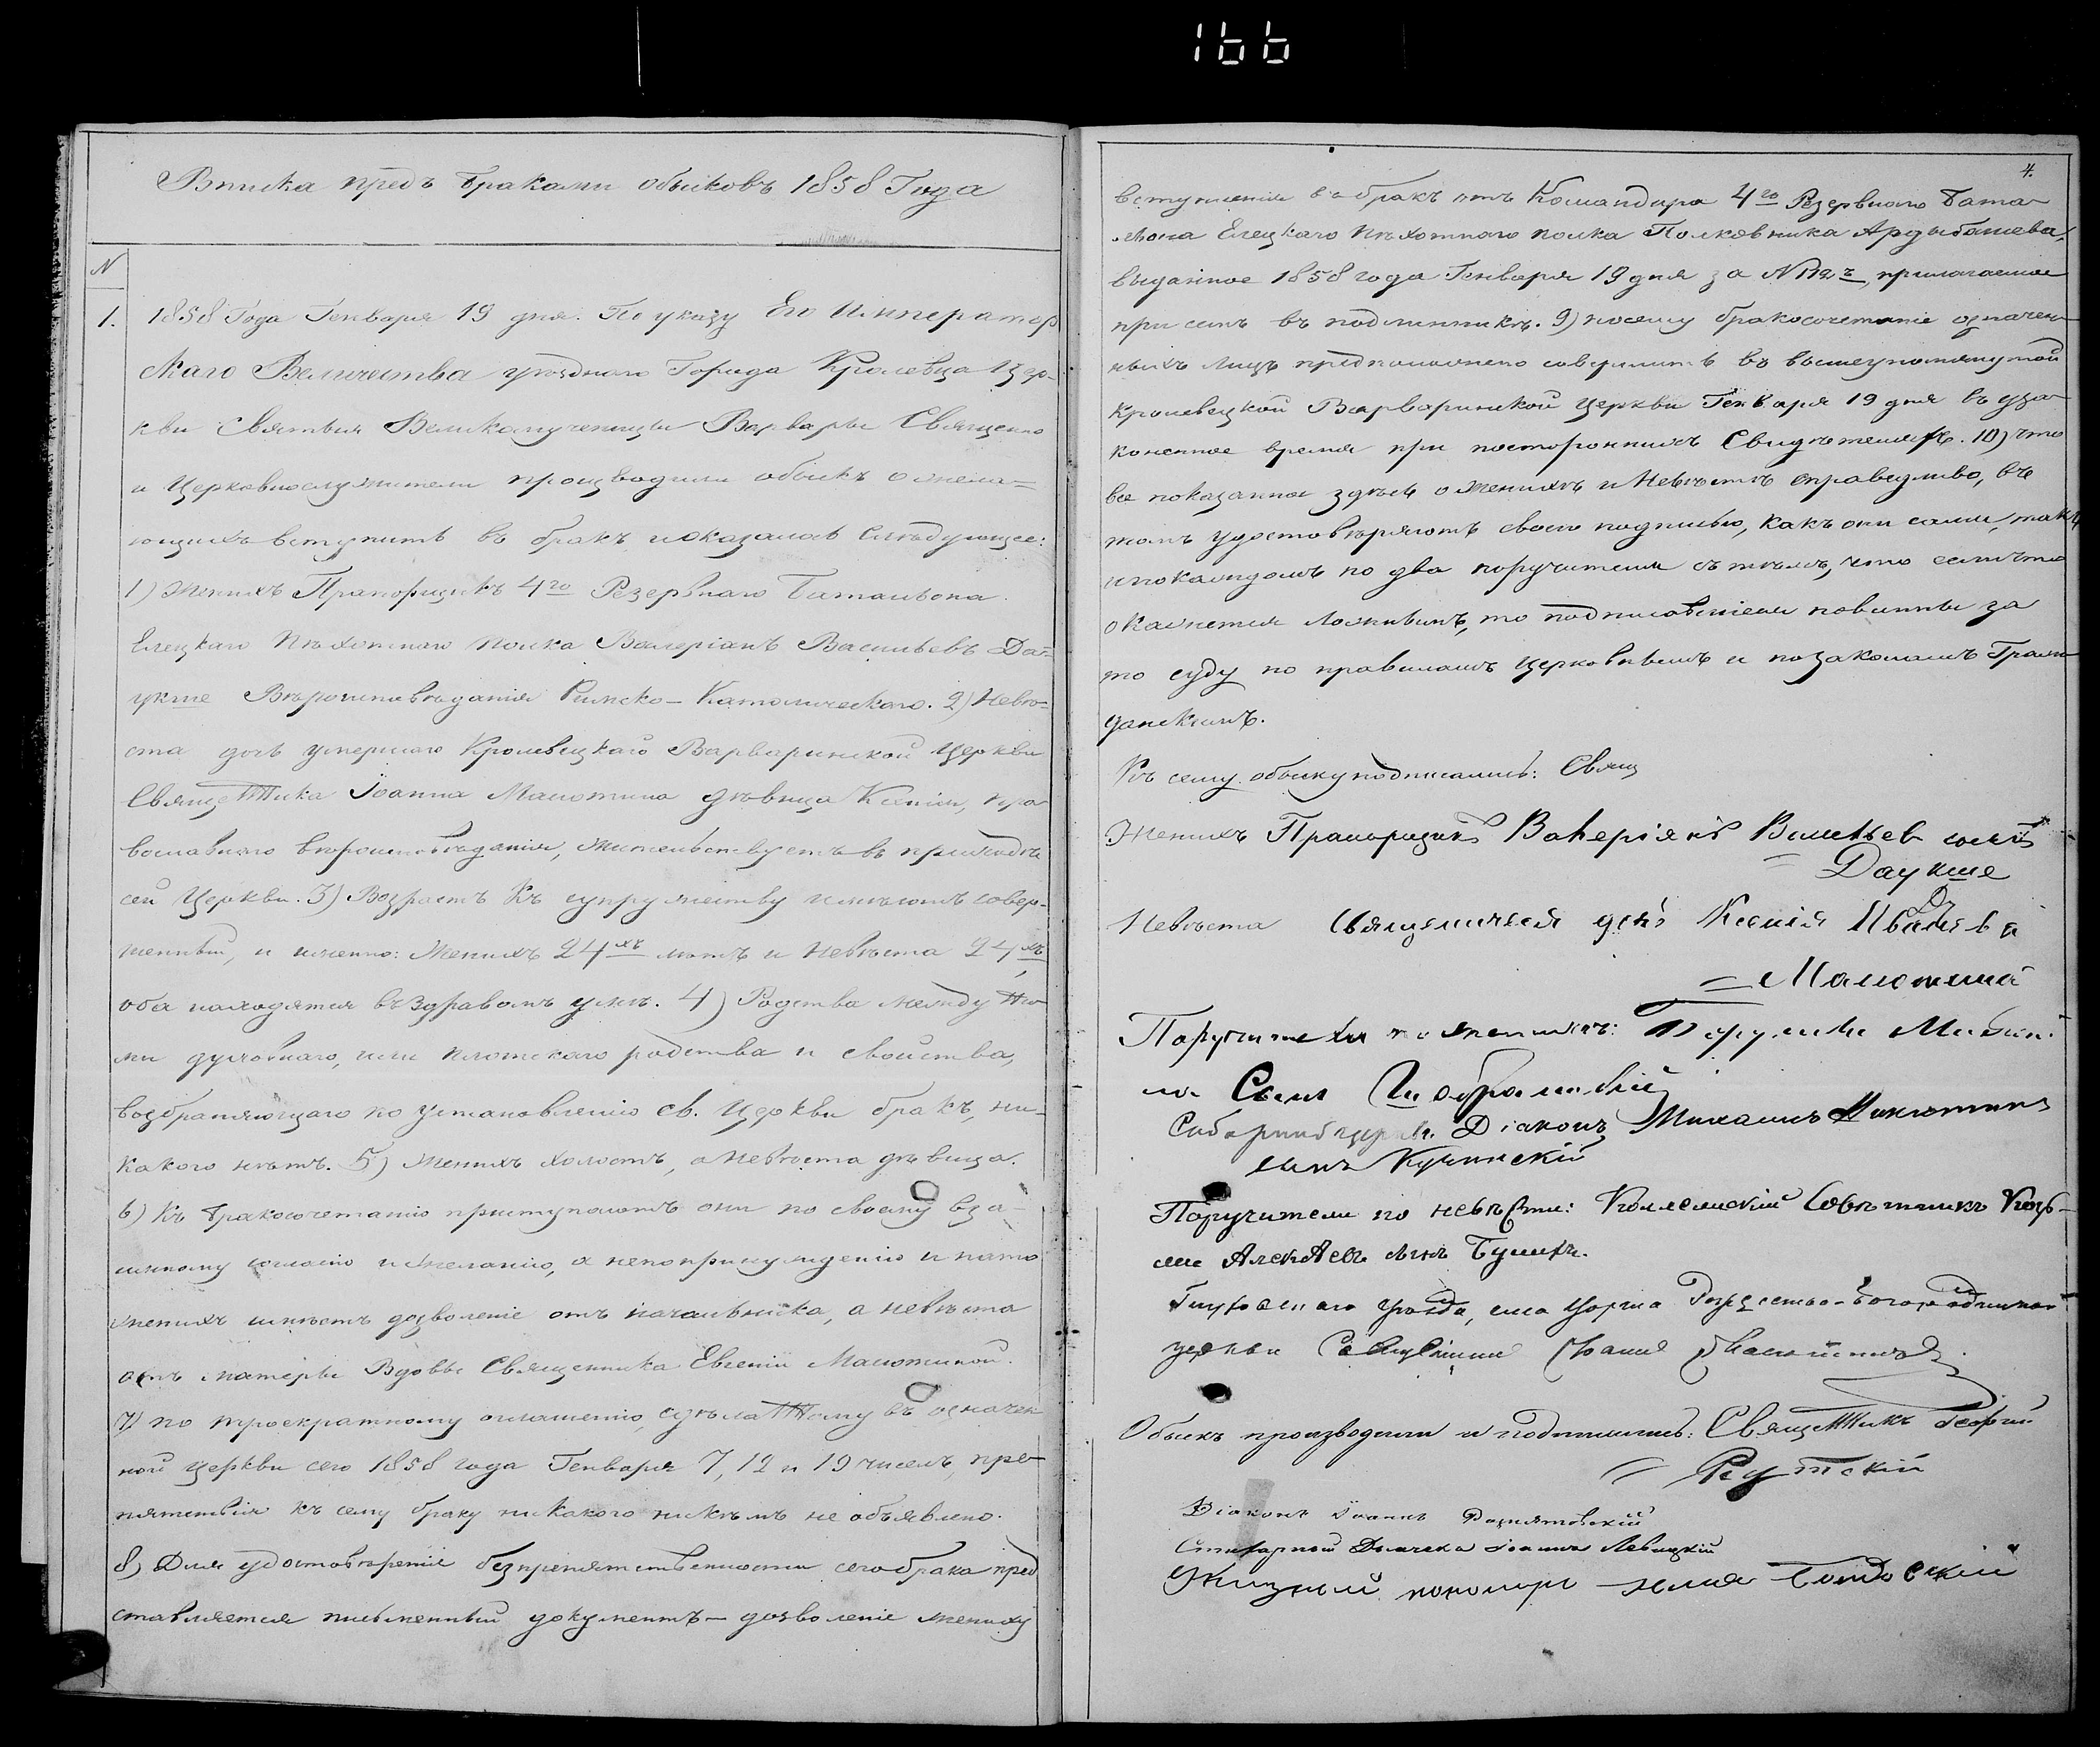 166
Вписка предъ браками обысковъ 1858 Года
N
1. 1858 Года Генваря 19 дня. По указу Его Император
скаго Величества уѣзднаго Города Кролевца Цер-
кви Святыя Великомученицы Варвары Священно
и Церковнослужители производили обыскъ о жела-
ющихъ вступить въ бракъ и оказалось слѣдующее:
1) Женихъ Прапорщикъ 4го Резервнаго Баталіона
Елецкаго Пѣхотнаго полка Валеріанъ Васильевъ Да-
укше Вѣроисповѣданія Римско-Католическаго. 2) Невѣ-
ста дочь умершаго Кролевецкаго Варваринской Церкви
Священника Іоанна Малютина дѣвица Ксенія, пра-
вославнаго вѣроисповѣданія, жительствуетъ въ приходѣ
сей Церкви. 3) Возрастъ къ супружеству имѣютъ совер-
шенный, и именно: женихъ 24хъ лѣтъ и невѣста 24хъ,
оба находятся въ здравомъ умѣ. 4) Родства между ни-
ми духовнаго, или плотскаго родства и свойства,
возбраняющаго по установленію св. Церкви бракъ, ни-
какого нѣтъ. 5) Женихъ холостъ, а Невѣста дѣвица.
6) Къ бракосочетанію приступаютъ они по своему вза-
имному согласію и желанію, а не по принужденію и на то
женихъ имѣетъ дозволеніе отъ начальника, а невѣста
отъ матери Вдовы Священника Евгеніи Малютиной.
7) по троекратному оглашенію, сдѣланному въ означен
ной церкви сего 1858 года Генваря 7, 12 и 19 чиселъ, пре-
пятствія къ сему браку никакого никѣмъ не объявлено.
8) Для удостовѣренія безпрепятственности сего брака пред
ставляется письменный документъ – дозволеніе жениху
4.
вступленія въ бракъ отъ Командира 4го Резервнаго Бата-
ліона Елецкаго Пѣхотнаго полка Полковника Ардыбашева,
выданное 1858 года Генваря 19 дня за N прилагаемое
при семъ въ подлинникѣ. 9) посему бракосочетаніе означен-
ныхъ лицъ предположено совершить въ вышеупомянутой
Кролевецкой Варваринской церкви Генваря 19 дня въ уза-
коненное время при постороннихъ Свидѣтеляхъ. 10) что
все показанное здѣсь о Женихѣ и Невѣстѣ справедливо, въ
томъ удостовѣряютъ своею подписью, какъ они сами, такъ
и по каждомъ по два поручителя съ тѣмъ, что если что
окажется ложнымъ, то подписавшіеся повинны за
то суду по правиламъ Церковнымъ и по законамъ Граж-
данскимъ.
Къ сему обыску подписались: Свящ
Женихъ Прапорщикъ Валеріянъ Васильев сынъ
Даукше
Невѣста Священическая дочь Ксенія Иванова
Малютина
Поручители по женихѣ:
Сынъ
Соборной церкви Діаконъ Михаилъ
сынъ Кучинскій
Поручители по невѣсти: Коллежскій Совѣтникъ Козь-
ма Алексѣевъ сынъ
Глуховскаго уѣзда, села Рождество-Богородичной
церкви Священникъ Іоаннъ
Обыскъ производили и подписались: Священникъ Георгій
Діаконъ Іоаннъ Рознятовскій
Дьячека Іоаннъ Левицкій
пономарь Илія